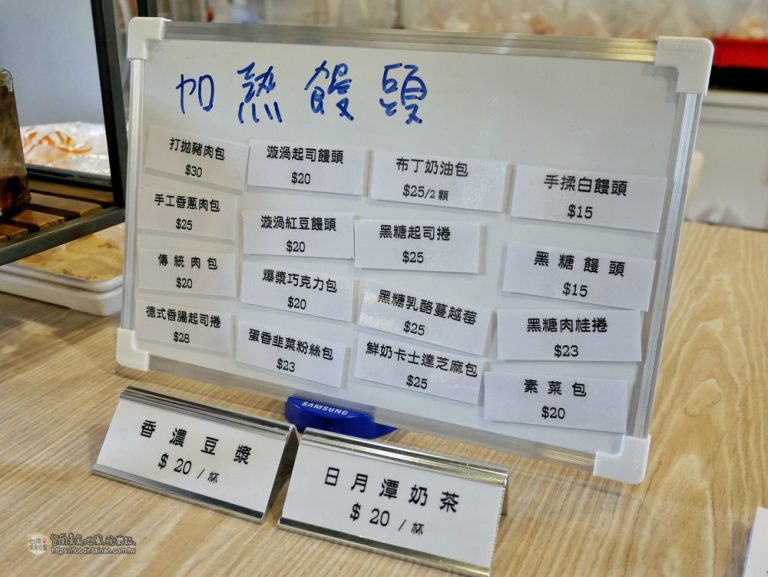 加熱饅頭
打拋豬肉包
$30
手工香蔥肉包
$25
傳統肉包
$20
德式香腸起司捲
$28
漩渦起司饅頭
$20
漩渦紅豆饅頭
$20
爆漿巧克力包
$20
蛋香韭菜粉絲包
$23
布丁奶油包
$25/2顆
黑糖起司捲
$25
黑糖乳酪蔓越莓
$25
鮮奶卡士達芝麻包
$25
手揉白饅頭
$15
黑糖饅頭
$15
黑糖肉桂捲
$23
素菜包
$20
SAMSUNG
香濃豆漿
$20/杯
日月潭奶茶
$20/杯
https://foodintainan.com.tw